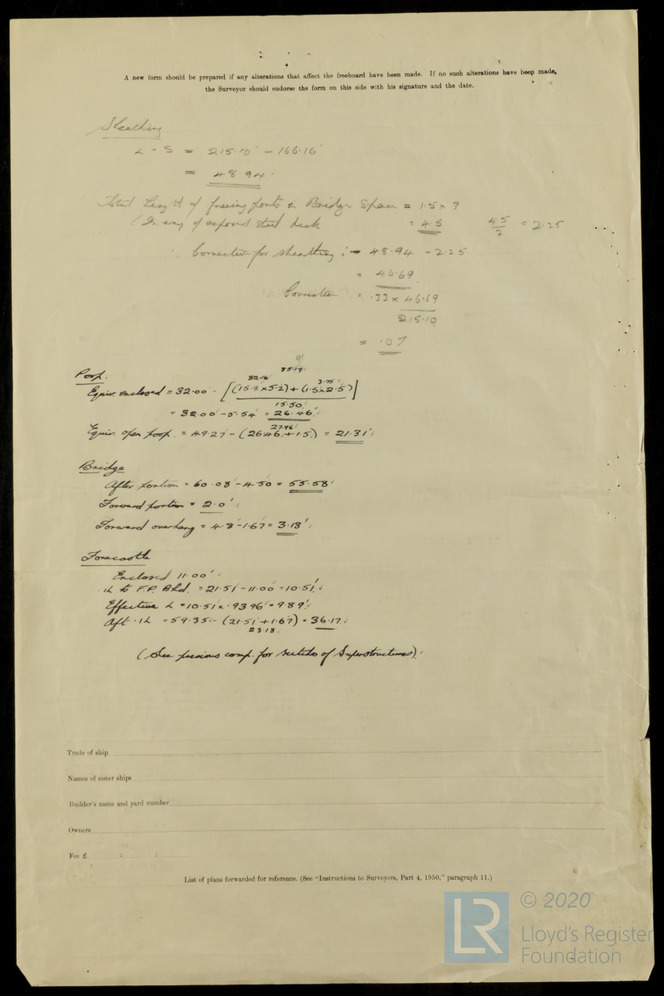 A new form should be prepared if any alterations that affect the freeboard have been made. If no such alterations have been made,
the Surveyor should endorse the form on this side with his signature and the date.
Sheathing
L - S = 215.10' - 166.16'
= 48.94'
Total Length of & Bridge Space = 1.5 × ?
(In way of exposed steel deck = 4.5 4.5/2 = 2.25
Correction for sheathing :- 48.94 - 2.25
= 46.69
Correction = .33 × 46.69
215.10
= .07
Poop.
32.16 25.19 3.75
Equiv. enclosed = 32.00' - [(15.3 × 5.2) + (1.5 × 2.5)]
15.50'
= 32.00' - 5.54' = 26.46'.
27.96'
Equiv. open poop. = 49.27' - (26.46 + 1.5) = 21.31'.
Bridge
After portion = 60.08' - 4.50 = 55.58'
Forward portion = 2.0'.
Forward overhang = 4.8' - 1.67' = 3.13'.
Forecastle
Enclosed 11.00'.
L to F.P. Bhd. = 21.51' - 11.00' = 10.51'.
Effective L = 10.51 × .9396 = 9.89'.
Aft. L = 59.35' - (21.51' + 1.67') = 36.17'.
23.18.
(See previous comp. for sketches of Superstructures).
Trade of ship
Names of sister ships
Builder's name and yard number
Owners
Fee £ : :
List of plans forwarded for reference. (See "Instructions to Surveyors, Part 4, 1950," paragraph 11.)
LR
© 2020
Lloyd's Register
Foundation